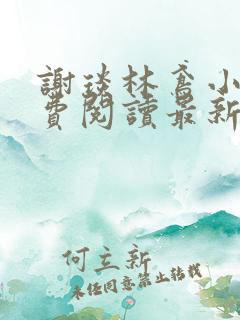 謝琰林鳶小
費閱讀最新
何立新
未經同意禁止轉載